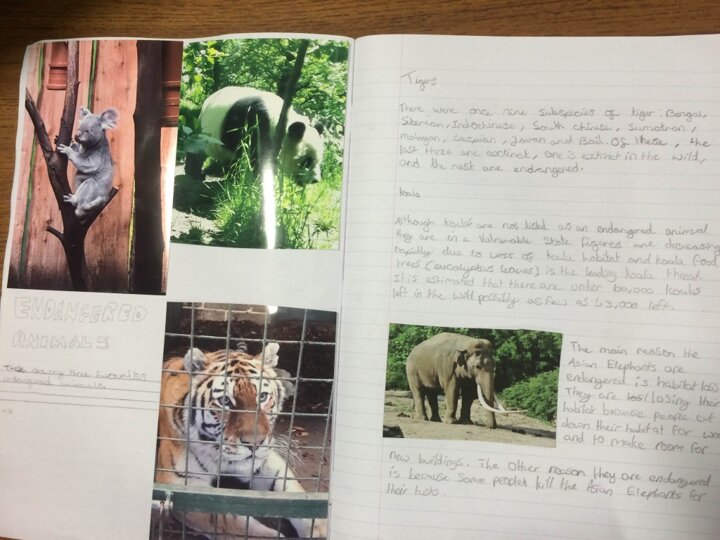 ENDANGERED
ANIMALS
These are my three favourite
endangered animals.
Tigers
There were once nine subspecies of tiger: Bengal,
Siberian, Indochinese, South chinese, Sumatran,
malayan, Caspian, Javan and Bali. Of these, the
last three are exctinct, one is extinct in the wild,
and the rest are endangered.
koala
Although koala's are not listed as an endangered animal
they are in a Vulnerable state figures are decreasing
rapidly due to Loss of koala habitat and koala food
trees (eucalyptus leaves) is the leading koala threat.
It is estimated that there are under 80,000 koala's
left in the wild possibly as few as 43,000 left.
The main reason the
Asian Elephants are
endangered is habitat loss
They are losing their
habitat because people cut
down their habitat for
and to make room for
new buildings. The other reason they are endangered
is because some people kill the Asian Elephants for
their tusks.